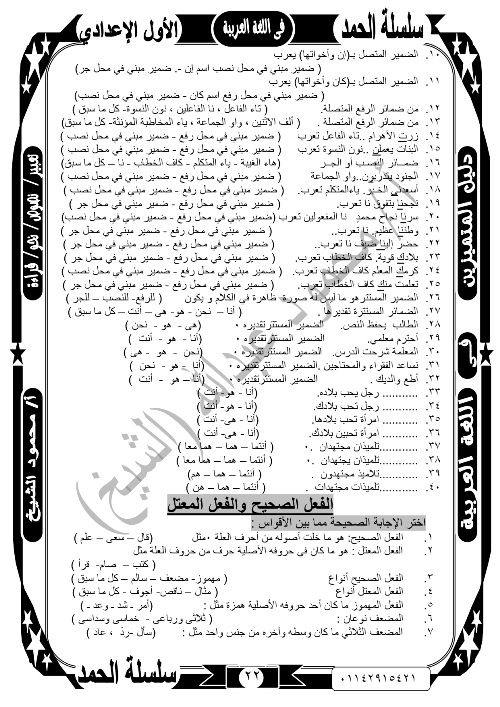 سلسلة الحمد
فى اللغة العربية
الأول الإعدادي
١٠. الضمير المتصل بـ(إن وأخواتها) يعرب
( ضمير مبني في محل نصب اسم إن -. ضمير مبني في محل جر )
١١. الضمير المتصل بـ(كان وأخواتها) يعرب
( ضمير مبني في محل رفع اسم كان - ضمير مبني في محل نصب)
١٢. من ضمائر الرفع المتصلة. ( تاء الفاعل ، نا الفاعلين ، نون النسوة- كل ما سبق )
١٣. من ضمائر الرفع المتصلة . ( ألف الاثنين ، واو الجماعة ، ياء المخاطبة المؤنثة- كل ما سبق)
١٤. زرت الأهرام ..تاء الفاعل تعرب ( ضمير مبني في محل رفع - ضمير مبني في محل نصب )
١٥. البنات يعملن ..نون النسوة تعرب ( ضمير مبني في محل رفع - ضمير مبني في محل نصب )
١٦. ضمائر النصب أو الجر ( هاء الغيبة - ياء المتكلم - كاف الخطاب - نا – كل ما سبق )
١٧. الجنود يتدربون..واو الجماعة ( ضمير مبني في محل رفع - ضمير مبني في محل نصب )
١٨. أسعدني الخبر.. ياءالمتكلم تعرب. ( ضمير مبني في محل رفع - ضمير مبني في محل نصب )
١٩. نجحنا بتفوق نا تعرب. ( ضمير مبني في محل رفع - ضمير مبني في محل جر )
٢٠. سرنا نجاح محمد نا المفعولين تعرب (ضمير مبني في محل رفع - ضمير مبني في محل نصب)
٢١. وطننا عظيم. نا تعرب.. ( ضمير مبني في محل رفع - ضمير مبني في محل جر )
٢٢. حضر إلينا ضيف نا تعرب.. ( ضمير مبني في محل رفع - ضمير مبني في محل جر )
٢٣. بلادك قوية. كاف الخطاب تعرب. ( ضمير مبني في محل رفع - ضمير مبني في محل جر )
٢٤. كرمك المعلم كاف الخطاب تعرب. ( ضمير مبني في محل رفع - ضمير مبني في محل نصب )
٢٥. تعلمت منك كاف الخطاب تعرب. ( ضمير مبني في محل رفع - ضمير مبني في محل جر )
٢٦. الضمير المستترهو ما ليس له صورة ظاهرة فى الكلام و يكون ( للرفع- للنصب – للجر )
٢٧. الضمائر المستترة تقديرها . ( أنا – نحن - هو - هى – أنت – كل ما سبق )
٢٨. الطالب يحفظ النص. الضمير المستتر تقديره . (هى - هو - نحن )
٢٩. أحترم معلمي. الضمير المستتر تقديره . (أنا - هو - أنت )
٣٠. المعلمة شرحت الدرس. الضمير المستتر تقديره . (نحن - هو - هى )
٣١. نساعد الفقراء والمحتاجين .الضمير المستترتقديره . (أنا - هو - نحن )
٣٢. أطع والديك . الضمير المستترتقديره . (أنا – هو - أنت )
٣٣. ........... رجل يحب بلاده. (أنا - هو- أنت )
٣٤. ........... رجل تحب بلادك. (أنا - هو- أنت )
٣٥. ........... امرأة تحب بلادها. (أنا - هى- أنت )
٣٦. ........... امرأة تحبين بلادك. (أنا - هى- أنت )
٣٧. ........... تلميذان مجتهدان. . ( أنتما – هما – هما معا )
٣٨. ........... تلميذان يجتهدان . ( أنتما – هما – هما معا )
٣٩. ........... تلاميذ مجتهدون. . ( أنتما – هما – هم)
٤٠. ........... تلميذات مجتهدات . ( أنتما – هما – هن )
الفعل الصحيح والفعل المعتل
اختر الإجابة الصحيحة مما بين الأقواس :
١. الفعل الصحيح: هو ما خلت أصوله من أحرف العلة .مثل (قال – سعى – علم )
٢. الفعل المعتل : هو ما كان فى حروفه الأصلية حرف من حروف العلة مثل
( كتب - صام- قرأ )
٣. الفعل الصحيح أنواع ( مهموز- مضعف – سالم – كل ما سبق )
٤. الفعل المعتل أنواع ( مثال – ناقص- أجوف - كل ما سبق )
٥. الفعل المهموز ما كان أحد حروفه الأصلية همزة مثل : (أمر - شد - وعد - )
٦. المضعف نوعان : ( ثلاثى ورباعى - خماسى وسداسى )
٧. المضعف الثلاثي ما كان وسطه وأخره من جنس واحد مثل : (سأل -ردّ ، عاد )
دليل المتميزين
فى
اللغة العربية
تعبير/ نصوص/ نحو/ قراءة
أ/ محمود الشيخ
سلسلة الحمد
٢٢
٠١١٤٢٩١٥٤٢١